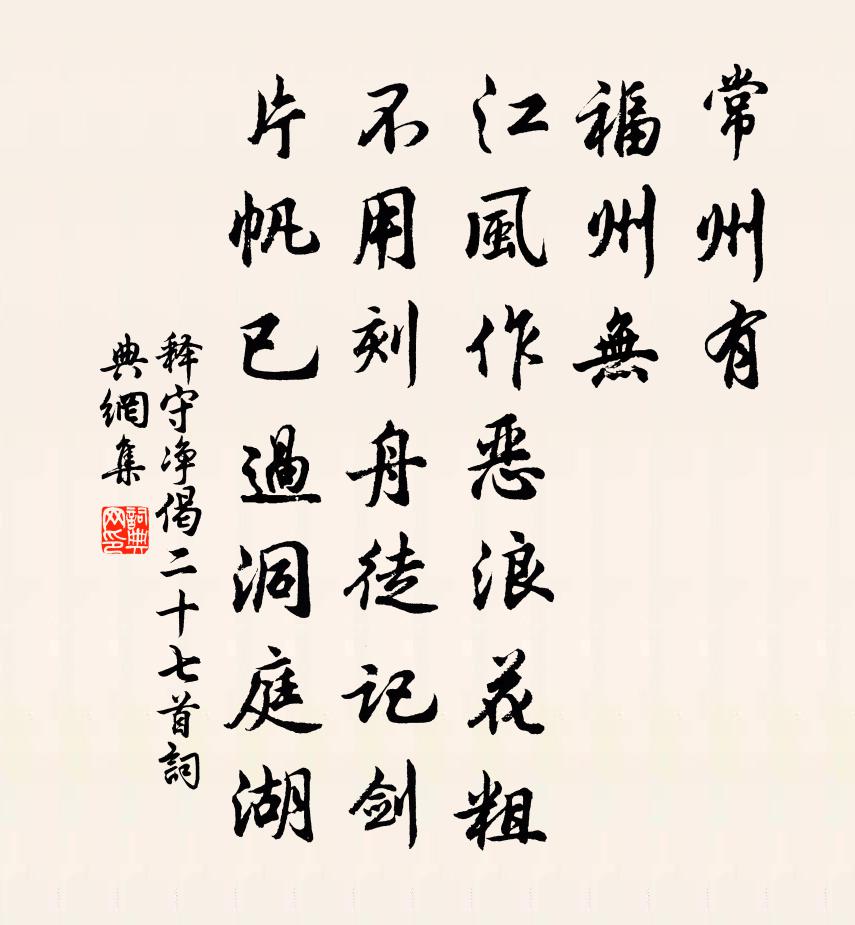 常州有
福州無
江風作惡浪花粗
不用刻舟徒记剑
片帆已過洞庭湖
释守净偈二十七首詞
典網集
詞典
网印